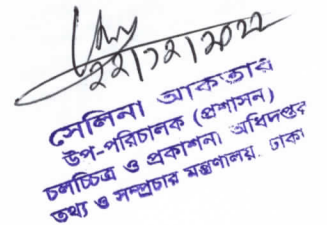 ২২/১২/২০২২
সেলিনা আকতার
উপ-পরিচালক (প্রশাসন)
চলচ্চিত্র ও প্রকাশনা অধিদপ্তর
তথ্য ও সম্প্রচার মন্ত্রণালয়, ঢাকা